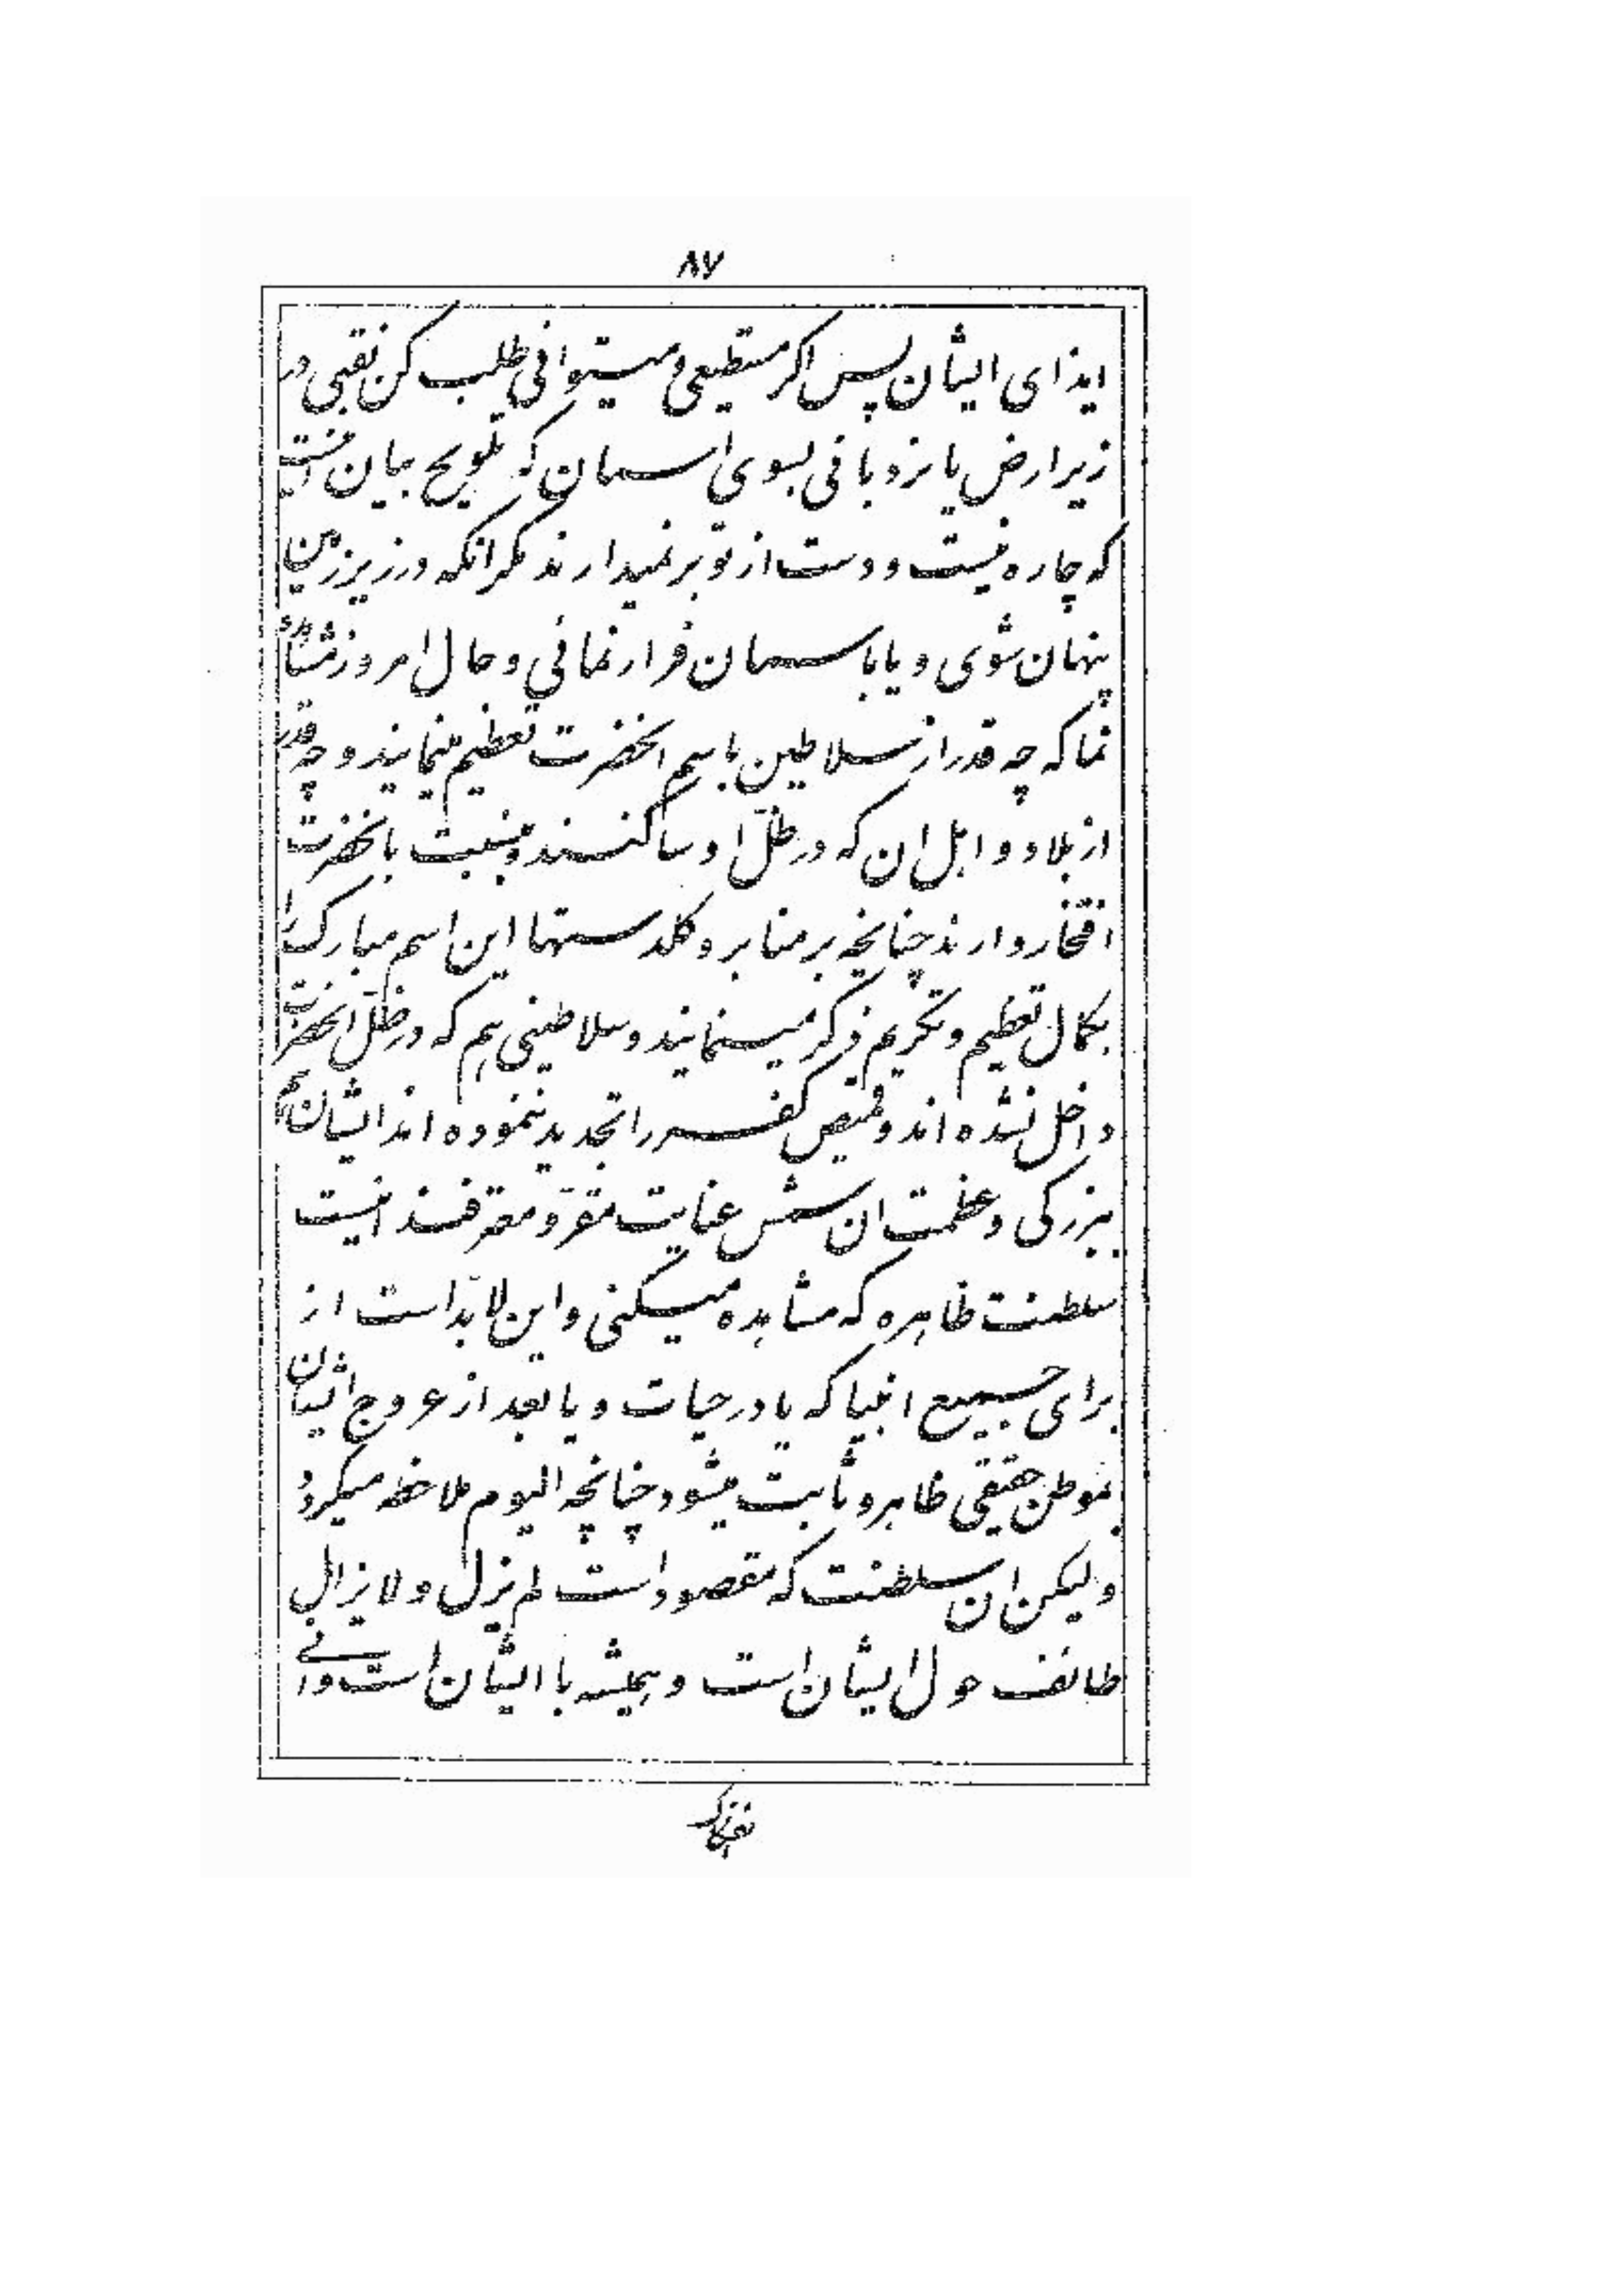 ۸۷
ایذای ایشان پس اکر مستطیعی و میتوانی طلب کن نقبی در
زیر ارض یا نردبانی بسوی اسمان که تلویح بیان انست
که چاره نیست و دست از تو بر نمیدارند مکر انکه در زیر زمین
پنهان شوی و یا باسمان فرار نمائی و حال امروز مشاهده
نما که چه قدر از سلاطین باسم انحضرت تعظیم مینمایند و چه قدر
از بلاد و اهل ان که در ظلّ او ساکنند و بنسبت بانحضرت
افتخار دارند چنانچه بر منابر و کلدستها این اسم مبارک را
بکمال تعظیم و تکریم ذکر مینمایند و سلاطینی هم که در ظلّ انحضرت
داخل نشده اند و قمیص کفر را تجدید ننموده اند ایشان هم
ببزرکی و عظمت ان شمس عنایت مقرّ و معترفند اینست
سلطنت ظاهره که مشاهده میکنی و این لابدّ است از
برای جمیع انبیا که یا در حیات و یا بعد از عروج ایشان
بموطن حقیقی ظاهر و ثابت میشود چنانچه الیوم ملاحظه میکردد
ولیکن ان سلطنت که مقصود است لم یزل و لایزال
طائف حول ایشان است و همیشه با ایشان است و انی